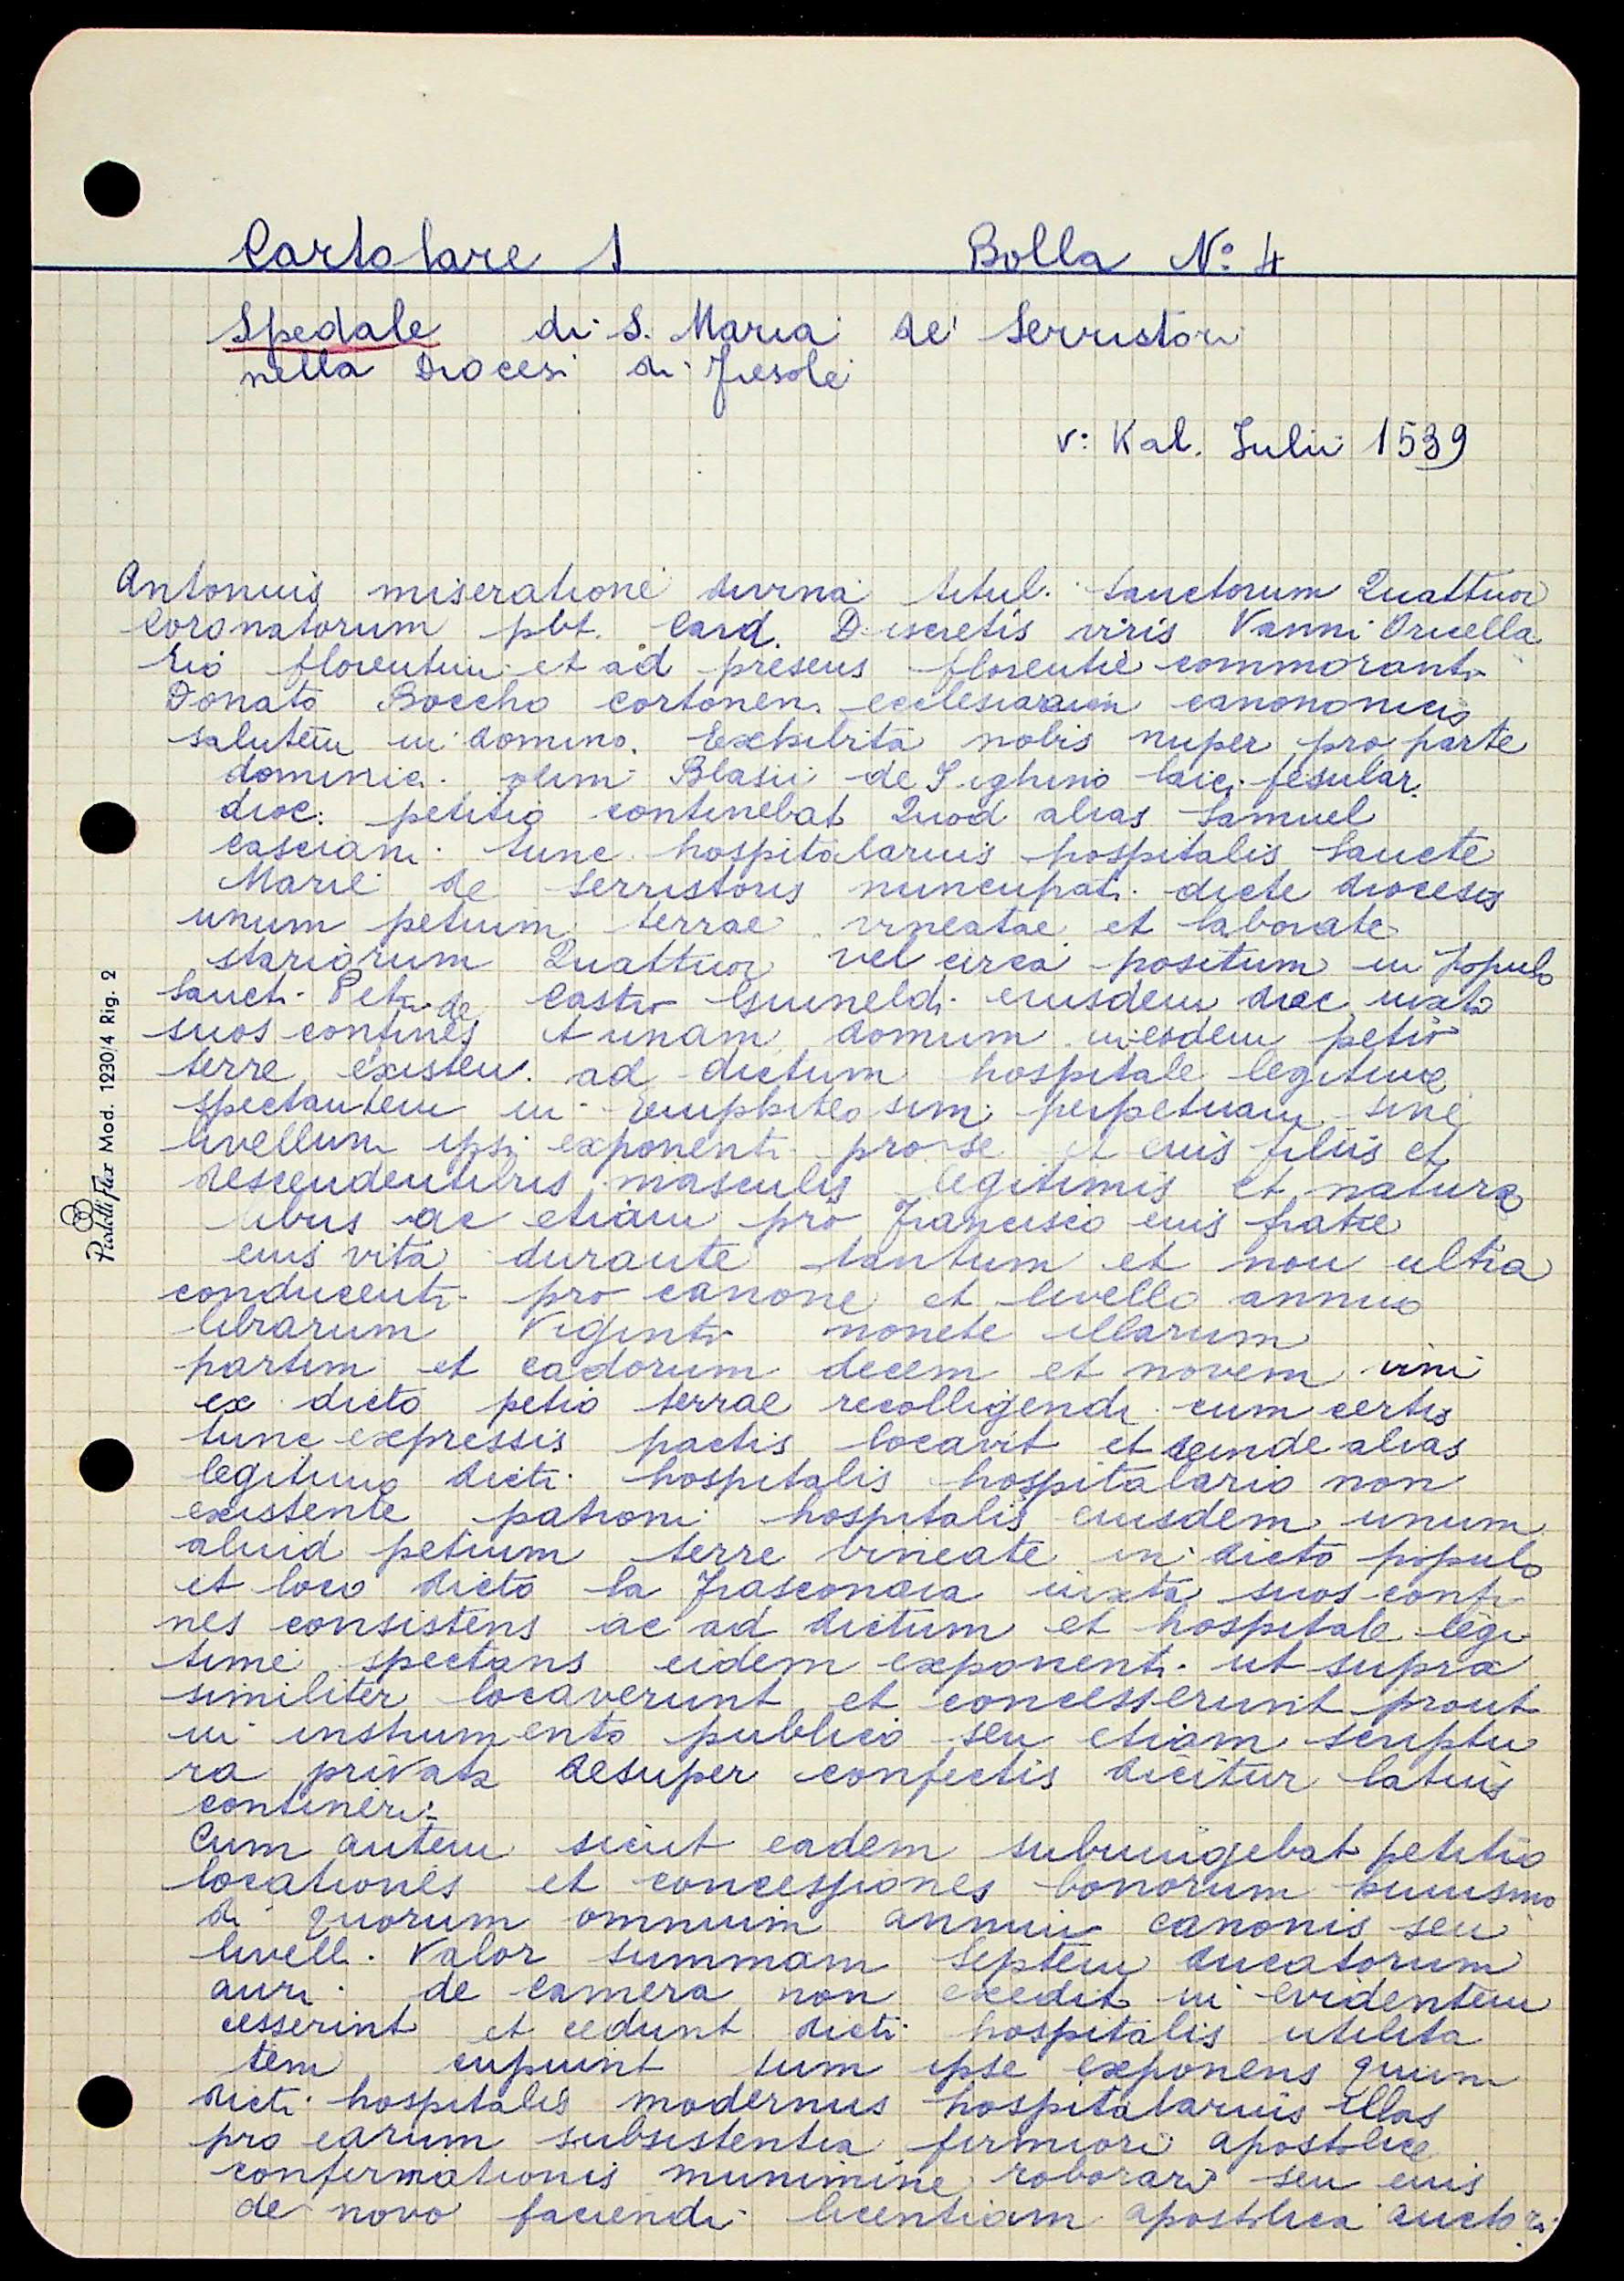 Cartolare 1 Bolla N° 4
Spedale di S. Maria de' Serristori
nella Diocesi di Fiesole
v: Kal. Julii 1539
Antonius miseratione divina titul. Sanctorum Quattuor
Coronatorum pbt. Card. Discretis viris Vanni Oricella
rio florentin. et ad presens florentie commoranti
Donato Boccho cortonen. ecclesiarum canononicis
salutem in domino. Exhibita nobis nuper pro parte
dominici olim Blasii de Sighino laici fesular.
dioc: petitio continebat Quod alias Samuel
Casciani tunc hospitalarius hospitalis Sancte
Marie de Serristoris nuncupati dicte diocesis
unum petium terrae vineatae et laborate
stariorum Quattuor vel circa positum in populo
Sancti Petri de Castro Guineldi eiusdem dioc iuxta
suos confines et unam domum in eodem petio
terre existen. ad dictum hospitale legitime
spectantem in Emphiteosim perpetuam sine
livellum ipsi exponenti pro se et eius filiis et
descendentibus masculis legitimis et natura
libus ac etiam pro Francisco eius fratre
eius vita durante tantum et non ultra
conducenti pro canone et livello annuo
librarum Viginti monete illarum
partim et cadorum decem et novem vini
ex dicto petio terrae recolligendi cum certis
tunc expressis pactis locavit et deinde alias
legitimo dicti hospitalis hospitalario non
existente patroni hospitalis eiusdem unum
aliud petium terre vineate in dicto populo
et loco dicto la Frasconaia iuxta suos confi
nes consistens ac ad dictum et hospitale legi
time spectans eidem exponenti ut supra
similiter locaverunt et concesserunt prout
in instrumento publico seu etiam scriptu
ra privata desuper confectis dicitur latius
contineri.
Cum autem sicut eadem subiungebat petitio
locationes et concessiones bonorum huiusmo
di quorum omnium annui canonis seu
livelli Valor summam Septem ducatorum
auri de camera non excedit in evidentem
cesserint et cedunt dicti hospitalis utilita
tem cupiunt tum ipse exponens quum
dicti hospitalis modernus hospitalarius illas
pro earum subsistentia firmiori apostolice
confirmationis munimine roborari seu eius
de novo faciendi licentiam apostolica auctori
Pardetti Flex Mod. 1230/4 Rig. 2